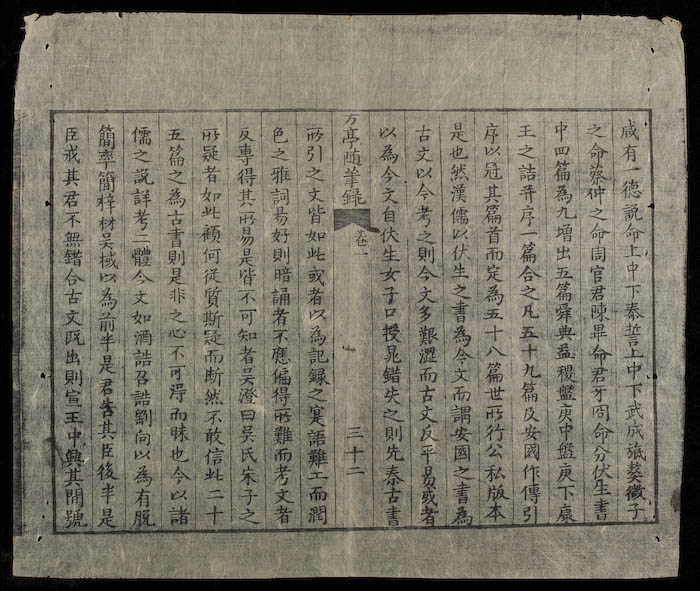 咸有一德說命上中下泰誓上中下武成旅獒微子
之命蔡仲之命周官君陳畢命君牙冏命分伏生書
中四篇為九增出五篇舜典益稷盤庚中盤庚下康
王之誥并序一篇合之凡五十九篇及安國作傳引
序以冠其篇首而定為五十八篇世所行公私版本
是也然漢儒以伏生之書為今文而謂安國之書為
古文以今考之則今文多艱澀而古文反平易或者
以為今文自伏生女子口授晁錯失之則先秦古書
方亭隨筆錄 卷一 三十二
所引之文皆如此或者以為記録之寔語難工而潤
色之雅詞易好則暗誦者不應偏得所難而考文者
反專得其所易是皆不可知者吳澄曰吳氏朱子之
所疑者如此顧何從質斯疑而断然不敢信此二十
五篇之為古書則是非之心不可淂而昧也今以諸
儒之說詳考二體今文如酒誥召誥劉向以為有脫
簡率簡梓材吳棫以為前半是君告其臣後半是
臣戒其君不無錯合古文既出則宣王中興其間號